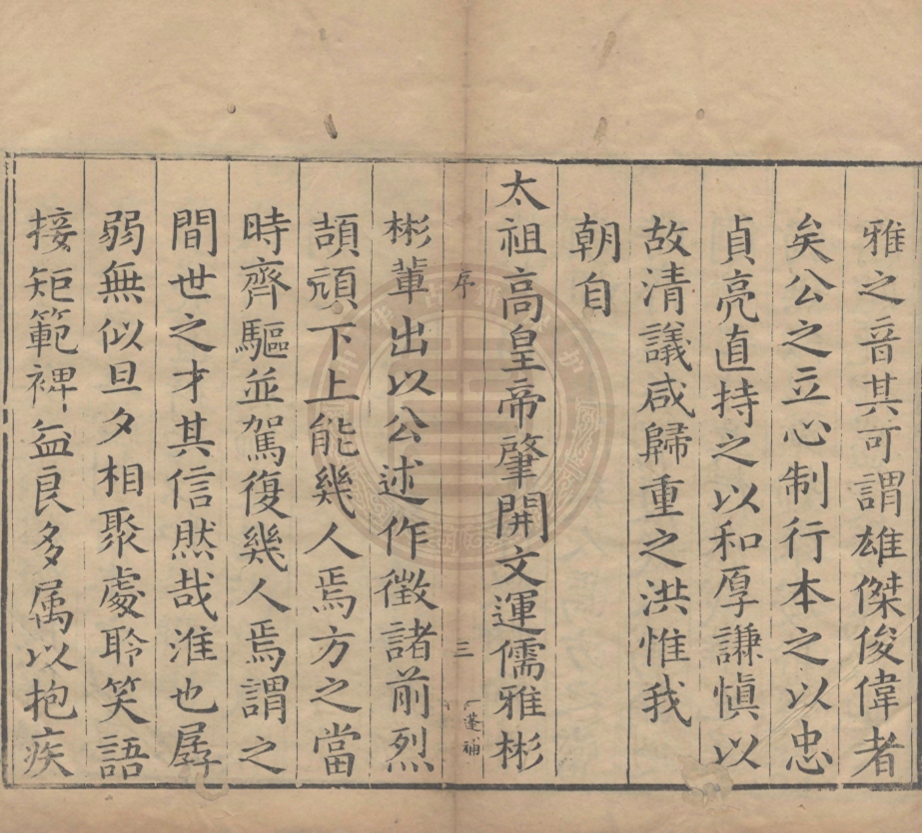 雅之音其可謂雄傑俊偉者
矣公之立心制行本之以忠
貞亮直持之以和厚謙慎以
故清議咸歸重之洪惟我
朝自
太祖高皇帝肇開文運儒雅彬
序
三
彬輩出以公述作徵諸前烈
頡頏下上能幾人焉方之當
時齊驅並駕復幾人焉謂之
間世之才其信然哉淮也孱
弱無似旦夕相聚處聆笑語
接矩範裨益良多属以抱疾